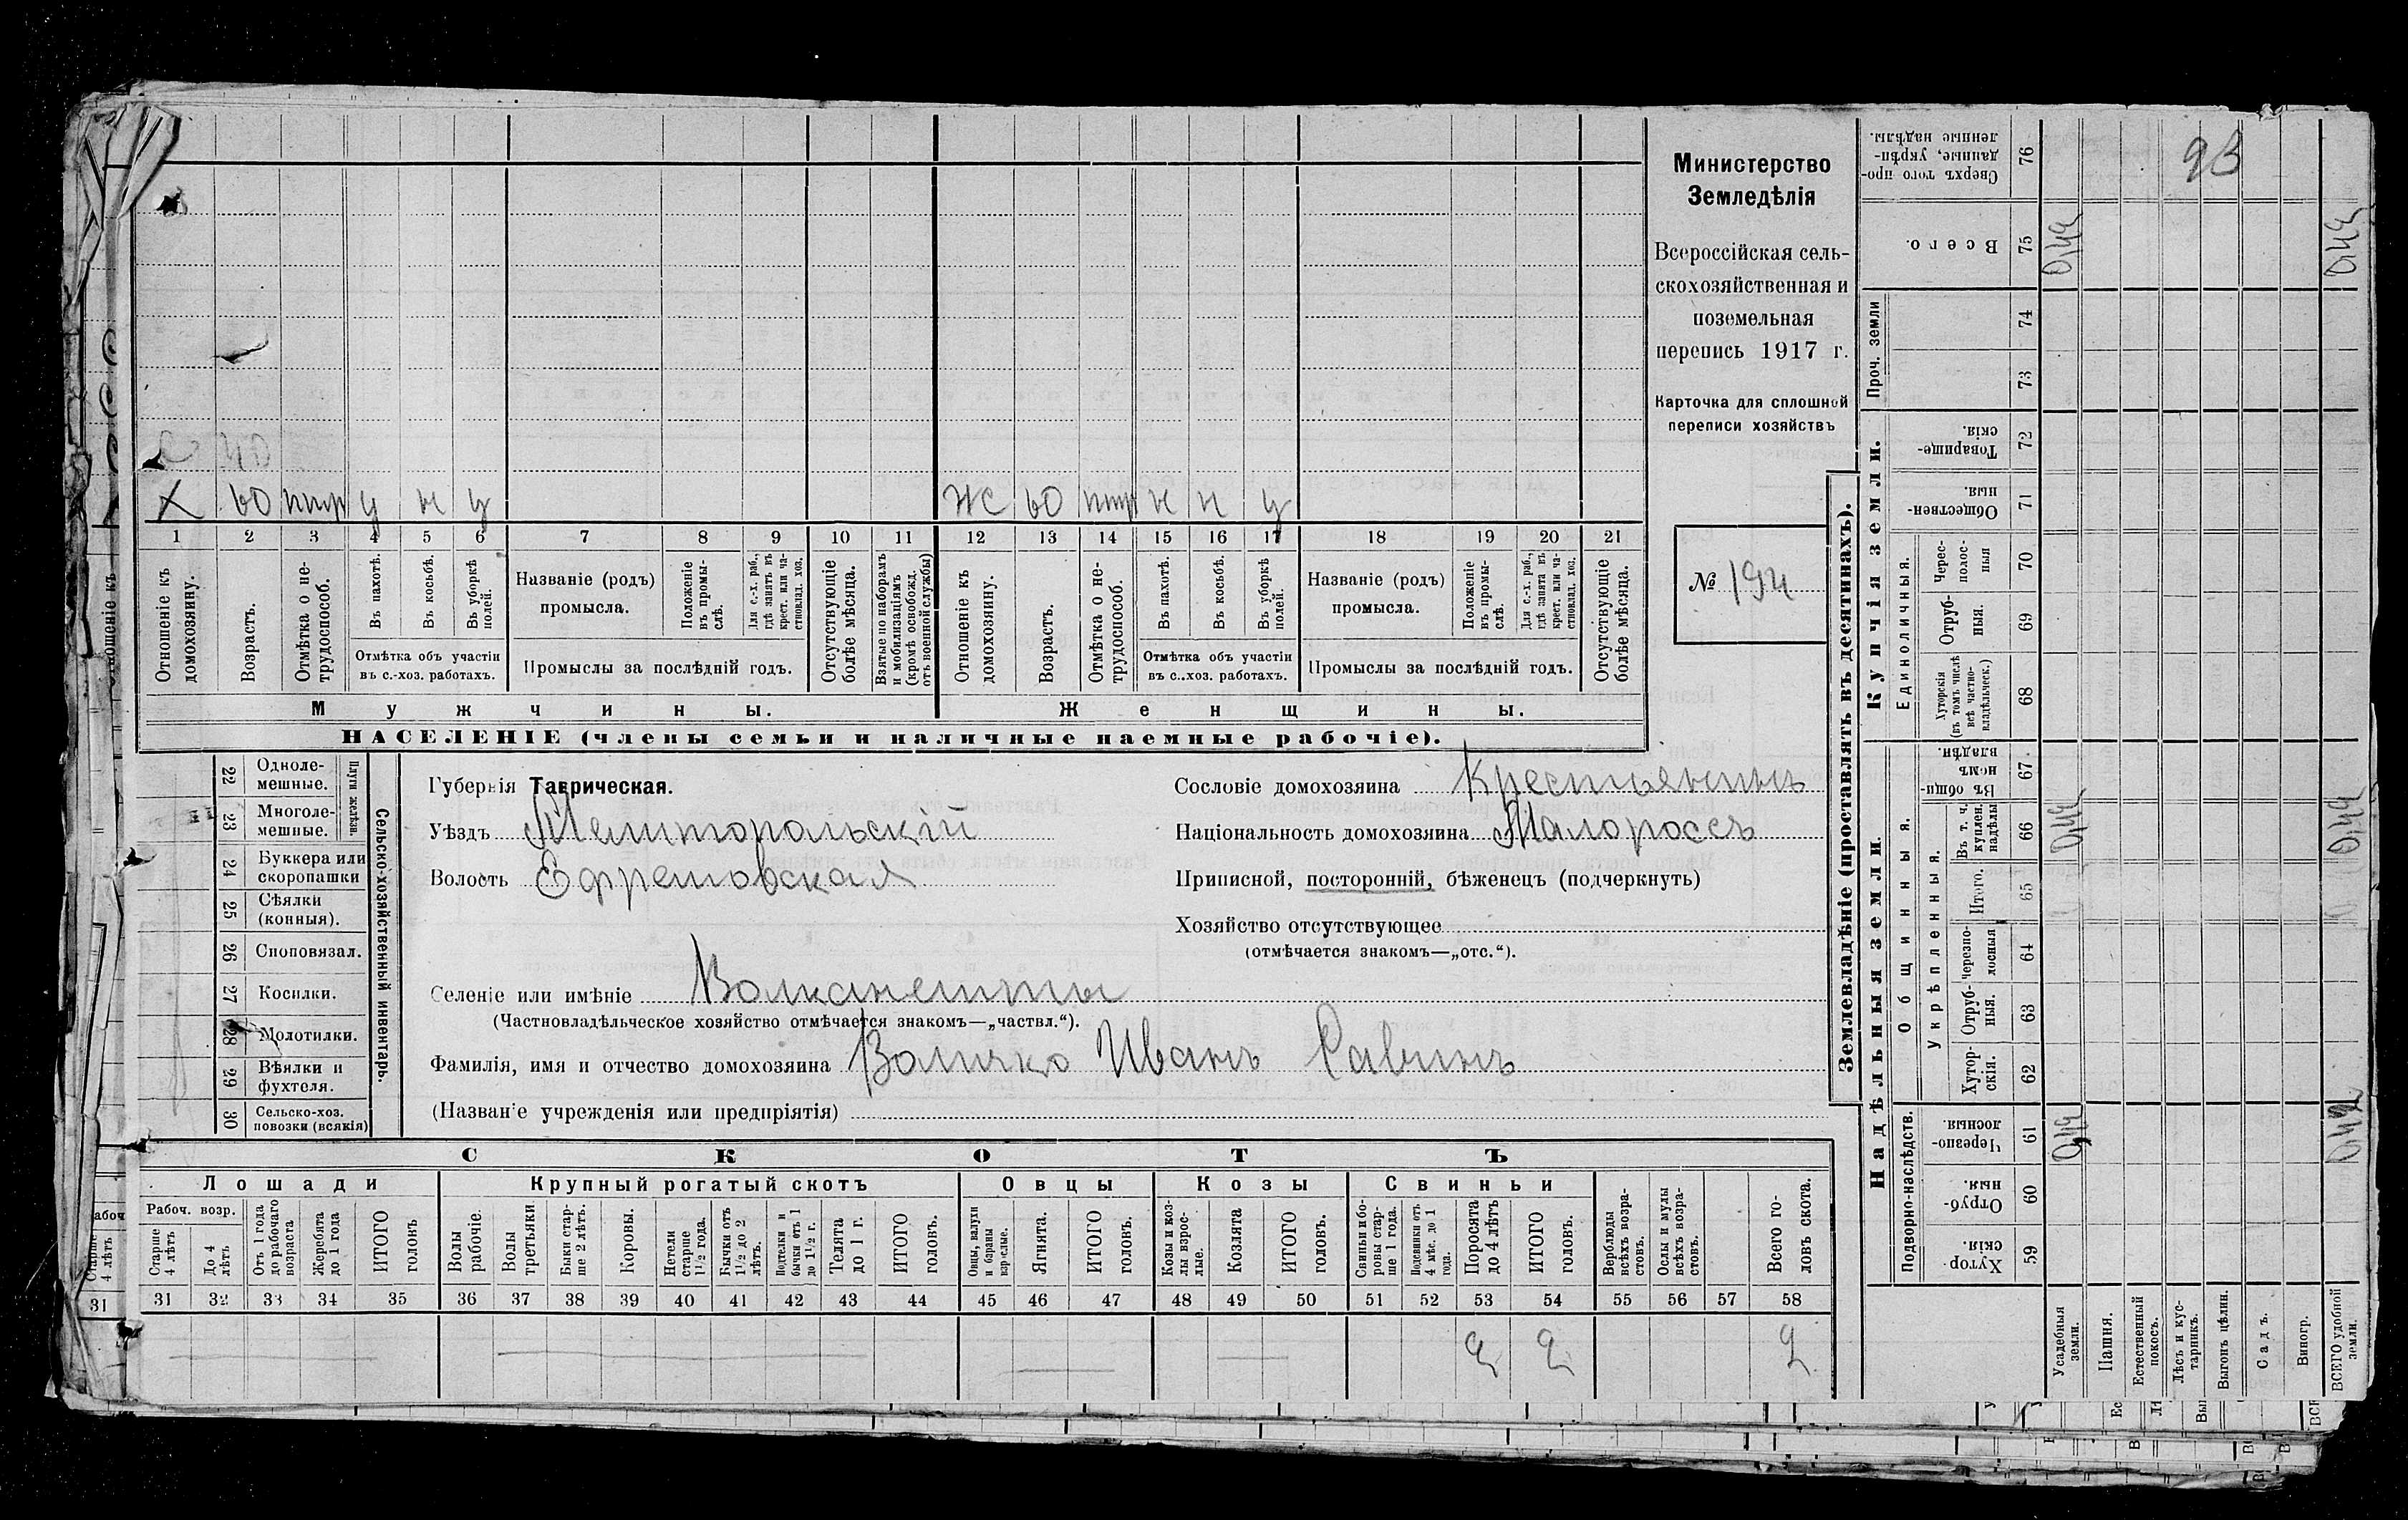 93
Министерство
Земледѣлія
Всероссійская сель-
скохозяйственная и
поземельная
перепись 1917 г.
Карточка для сплошной
переписи хозяйствъ
№ 194
Х 60 ппр у н у
ЖС 60 ппр н н у
1 2 3 4 5 6 7 8 9 10 11 12 13 14 15 16 17 18 19 20 21
Отношеніе къ домохозяину.
Возрастъ.
Отмѣтка о не-трудоспособ.
Въ пахотѣ.
Въ косьбѣ.
Въ уборкѣ полей.
Отмѣтка объ участіи
въ с.-хоз. работахъ.
Названіе (родъ)
промысла.
Положеніе въ промы-слѣ.
Для с.-х. раб., гдѣ занятъ въ крест. или ча-стновлад. хоз.
Промыслы за послѣдній годъ.
Отсутствующіе болѣе мѣсяца.
Взятые по наборамъ и мобилизаціямъ (кромѣ освобожд. отъ военной службы)
Отношеніе къ домохозяину.
Возрастъ.
Отмѣтка о не-трудоспособ.
Въ пахотѣ.
Въ косьбѣ.
Въ уборкѣ полей.
Отмѣтка объ участіи
въ с..хоз. работахъ.
Названіе (родъ)
промысла.
Положеніе въ промы-слѣ.
Для с.-х. раб., гдѣ занята въ крест. или ча-стновлад. хоз.
Промыслы за послѣдній годъ.
Отсутствующіе болѣе мѣсяца.
Мужчины.
Женщины.
НАСЕЛЕНІЕ (члены семьи и наличные наемные рабочіе).
Сельско-хозяйственный инвентарь.
Плуги желѣзн.
22 Одноле-мешные.
23 Многоле-мешные.
24 Буккера или скоропашки
25 Сѣялки (конныя).
26 Сноповязал.
27 Косилки.
28 Молотилки.
29 Вѣялки и фухтеля.
30 Сельско-хоз. повозки (всякія)
Губернія Таврическая.
Уѣздъ Мелитопольскій
Волость Ефремовская
Сословіе домохозяина Крестьянинъ
Національность домохозяина Малороссъ
Приписной, посторонній, бѣженецъ (подчеркнуть)
Хозяйство отсутствующее
(отмѣчается знакомъ—„отс.“).
Селеніе или имѣніе Волканешты
(Частновладѣльческое хозяйство отмѣчается знакомъ—„частвл.“).
Фамилія, имя и отчество домохозяина Величко Иванъ Савинъ
(Названіе учрежденія или предпріятія)
СКОТЪ
Лошади
Крупный рогатый скотъ
Овцы
Козы
Свиньи
Рабоч. возр.
Старше 4 лѣтъ
До 4 лѣтъ
Отъ 1 года до рабочаго возраста
Жеребята до 1 года
ИТОГО головъ
Волы рабочіе.
Волы третьяки
Быки стар-ше 2 лѣтъ.
Коровы.
Нетели старше 1½ года.
Бычки отъ 1½ до 2 лѣтъ.
Подтелки и бычки отъ 1 до 1½ г.
Телята до 1 г.
ИТОГО головъ.
Овцы, валухи и бараны взрослые.
Ягнята.
ИТОГО головъ.
Козы и коз-лы взрос-лые.
Козлята
ИТОГО головъ.
Свиньи и бо-ровы стар-ше 1 года.
Подсвинки отъ 4 мѣс. до 1 года.
Поросята до 4 лѣтъ
ИТОГО головъ.
Верблюды всѣхъ возра-стовъ.
Ослы и мулы всѣхъ возра-стовъ.
Всего го-ловъ скота.
31 32 33 34 35 36 37 38 39 40 41 42 43 44 45 46 47 48 49 50 51 52 53 54 55 56 57 58
2 2 2
Землевладѣніе (проставлять въ десятинахъ).
Надѣльныя земли.
Купчія земли.
Проч. земли
Подворно-наслѣдств.
Общинныя.
Укрѣпленныя.
Единоличныя.
Хутор-скія. 59
Отруб-ныя. 60
Черезпо-лосныя. 61
Хутор-скія. 62
Отруб-ныя. 63
Черезпо-лосныя 64
Итого. 65
Въ т. ч. куплен. надѣлы 66
Въ общи-номъ владѣн. 67
Хуторскія (въ томъ числѣ всѣ частно-владѣльческ.) 68
Отруб-ныя. 69
Черес-полос-ныя 70
Обществен-ныя. 71
Товарище-скія. 72
73
74
Всего. 75
Сверхъ того про-данные, укрѣп-ленные надѣлы. 76
Усадебныя земли.
Пашня.
Естественный покосъ.
Лѣсъ и кус-тарникъ.
Выгонъ цѣлин.
Садъ.
Виногр.
ВСЕГО удобной земли.